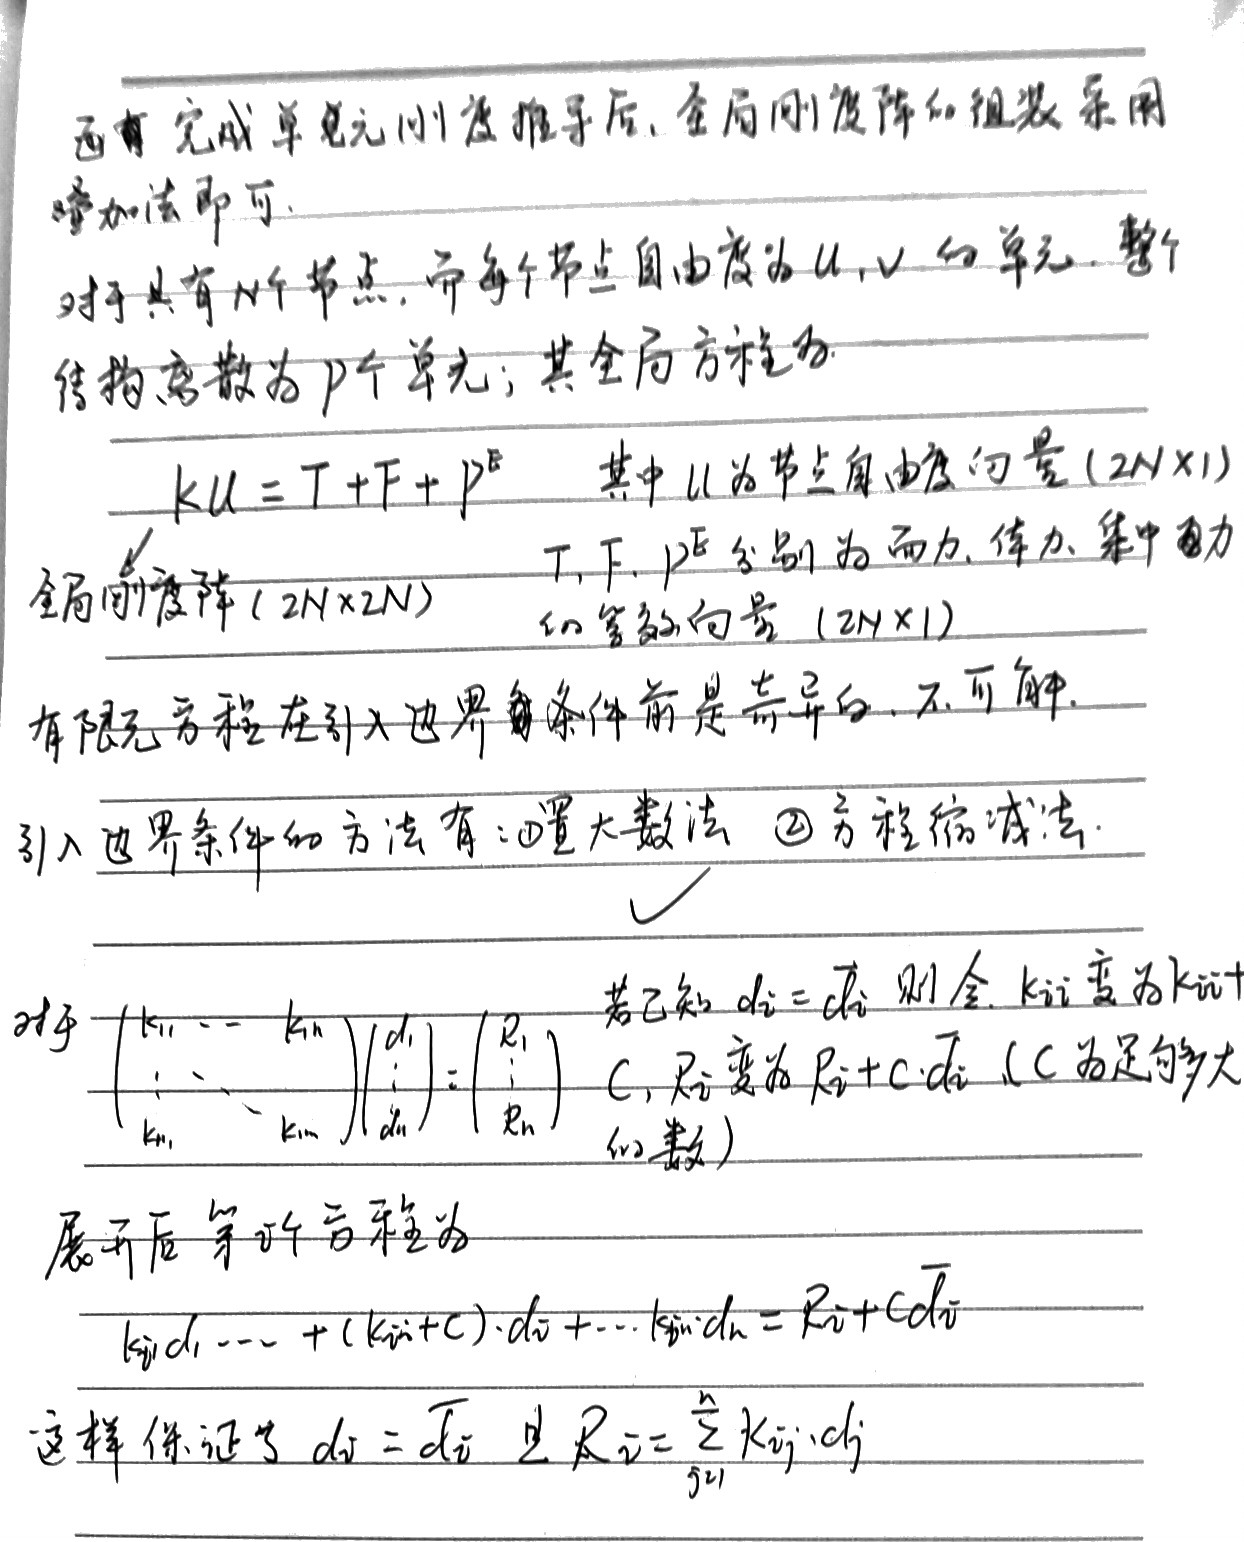 完成单元刚度推导后、全局刚度阵的组装采用
叠加法即可.
对于具有N个节点,而每个节点自由度为u,v的单元.整个
结构离散为P个单元;其全局方程为
KU=T+F+P^E 其中U为节点自由度向量(2N×1)
全局刚度阵(2N×2N) T、F、P^E分别为面力、体力、集中力
的等效向量(2N×1)
有限元方程在引入边界条件前是奇异的.不可解.
引入边界条件的方法有:①置大数法 ②方程缩减法.
✓
对于 (k11 ·· k1n ⋮ ⋱ kn1 knn)(d1 ⋮ dn)=(R1 ⋮ Rn) 若已知 di=d̄i 则令 kii变为kii+
C,Ri变为Ri+C·d̄i (C为足够大
的数)
展开后第i个方程为
ki1d1 ---- +(kii+C)·di+---kin·dn=Ri+Cd̄i
这样保证了 di=d̄i 且 Ri=Σ_{j=1}^{n} Kij·dj